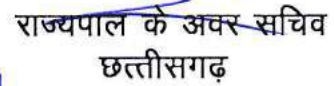 राज्यपाल के अवर सचिव
छत्तीसगढ़